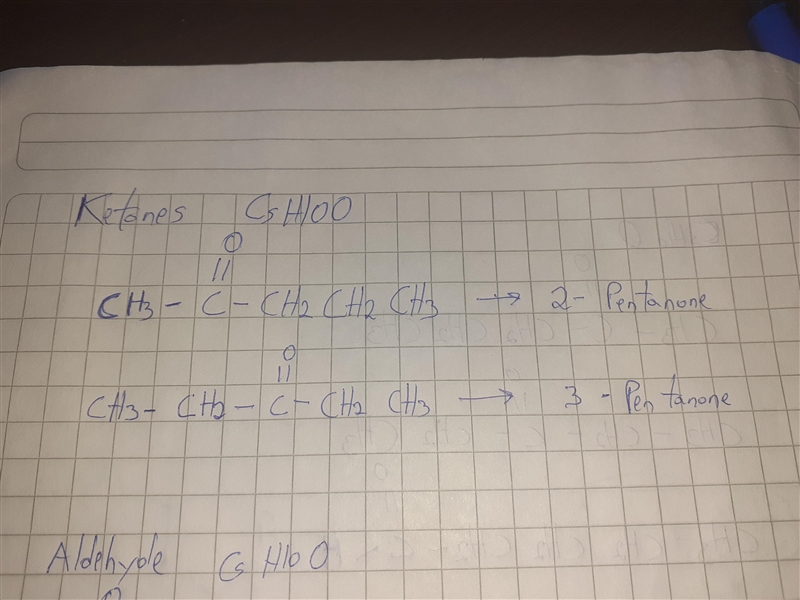 Ketones C5H10O
O
||
CH3 - C - CH2 CH2 CH3 → 2- Pentanone
O
||
CH3 - CH2 - C - CH2 CH3 → 3 - Pentanone
Aldehyde C5H10O
O